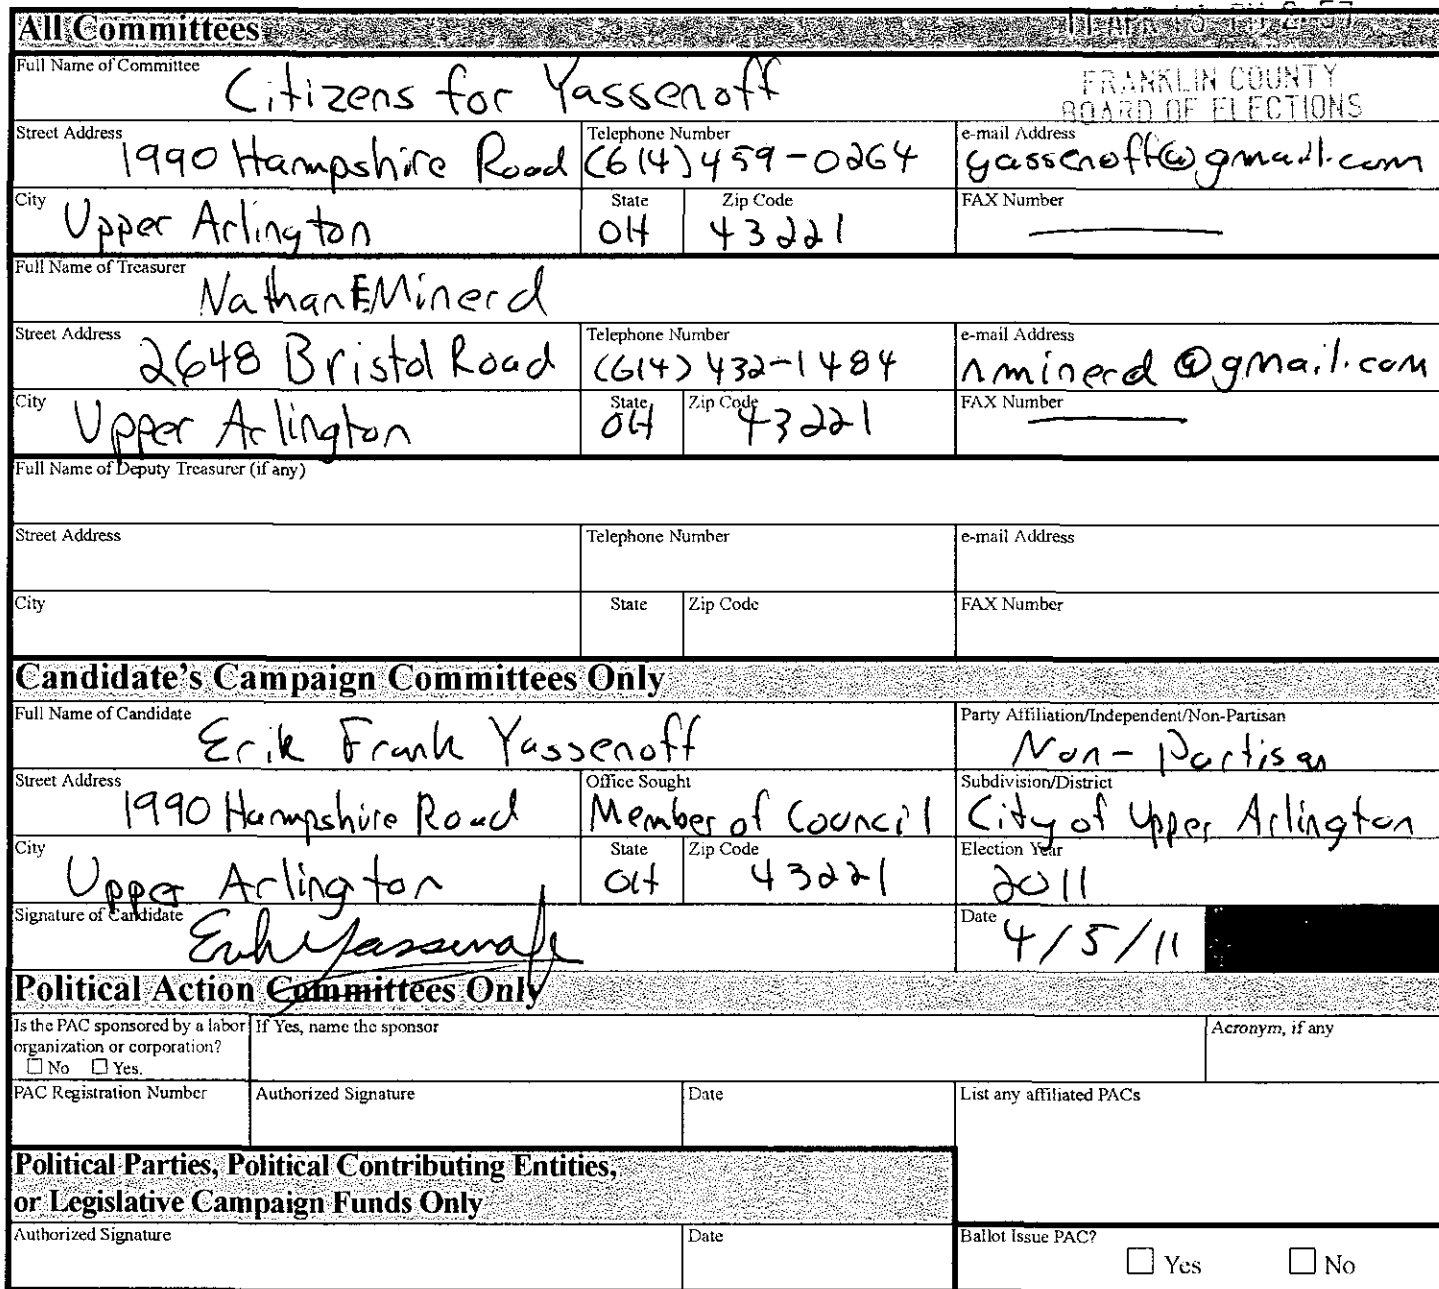 All Committees
Full Name of Committee Citizens for Yassenoff
FRANKLIN COUNTY
BOARD OF ELECTIONS
Street Address 1990 Hampshire Road Telephone Number (614) 459-0264 e-mail Address yassenoff@gmail.com
City Upper Arlington State OH Zip Code 43221 FAX Number
Full Name of Treasurer Nathan E Minerd
Street Address 2648 Bristol Road Telephone Number (614) 432-1484 e-mail Address nminerd@gmail.com
City Upper Arlington State OH Zip Code 43221 FAX Number
Full Name of Deputy Treasurer (if any)
Street Address Telephone Number e-mail Address
City State Zip Code FAX Number
Candidate's Campaign Committees Only
Full Name of Candidate Erik Frank Yassenoff Party Affiliation/Independent/Non-Partisan Non-Partisan
Street Address 1990 Hampshire Road Office Sought Member of Council Subdivision/District City of Upper Arlington
City Upper Arlington State OH Zip Code 43221 Election Year 2011
Signature of Candidate Erik Yassenoff Date 4/5/11
Political Action Committees Only
Is the PAC sponsored by a labor organization or corporation? No Yes. If Yes, name the sponsor Acronym, if any
PAC Registration Number Authorized Signature Date List any affiliated PACs
Political Parties, Political Contributing Entities,
or Legislative Campaign Funds Only
Authorized Signature Date Ballot Issue PAC? Yes No